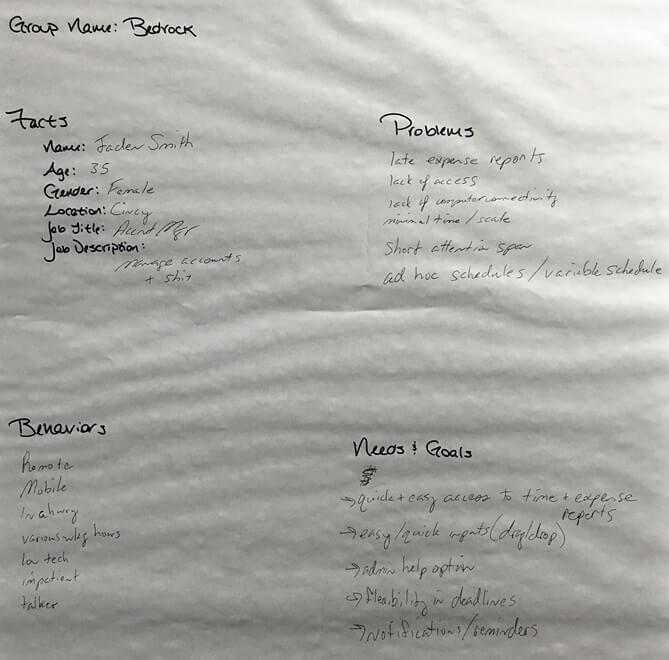 Group Name: Bedrock
Facts
Name: Jaden Smith
Age: 35
Gender: Female
Location: Cincy
Job Title: Accnt Mgr
Job Description:
manage accounts
+ shit
Problems
late expense reports
lack of access
lack of computer connectivity
minimal time / scale
Short attention span
ad hoc schedules / variable schedule
Behaviors
Remote
Mobile
In a hurry
various wkg hours
low tech
impatient
talker
Needs & Goals
$
→ quick + easy access to time + expense
reports
→ easy/quick inputs (drag/drop)
→ admin help option
→ flexibility in deadlines
→ notifications/reminders